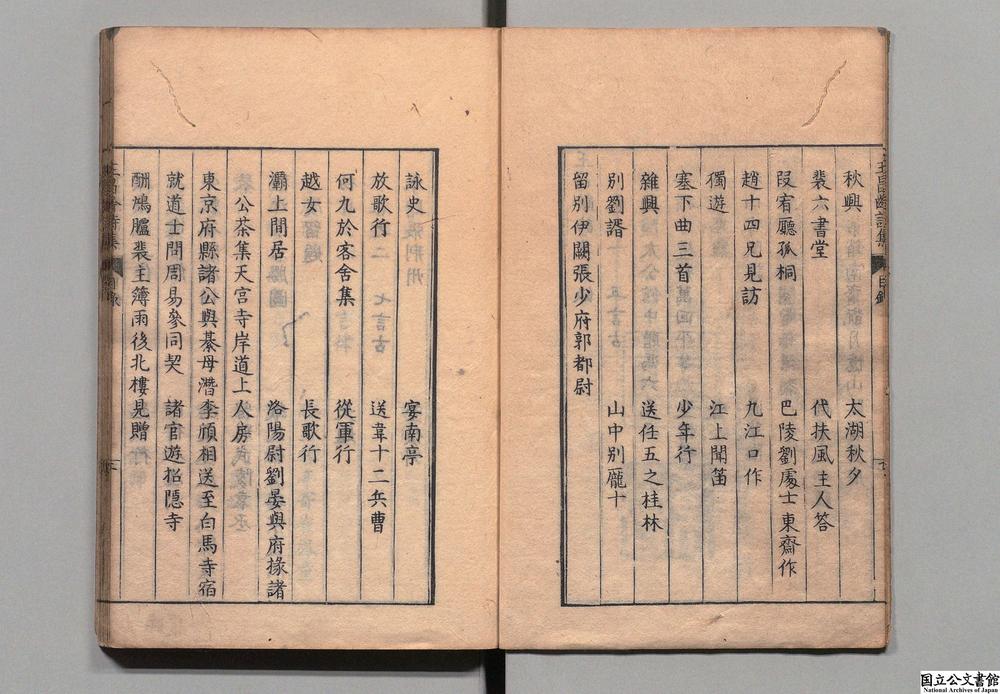 秋興 太湖秋夕
裴六書堂 代扶風主人答
段宥廳孤桐 巴陵劉處士東齋作
趙十四兄見訪 九江口作
獨遊 江上聞笛
塞下曲三首 少年行
雜興 送任五之桂林
別劉諝 山中別龐十
留別伊闕張少府郭都尉
詠史 宴南亭
放歌行 送韋十二兵曹
何九於客舍集 從軍行
越女 長歌行
灞上閒居 洛陽尉劉晏與府掾諸
公茶集天宮寺岸道上人房
東京府縣諸公與綦母潛李頎相送至白馬寺宿
就道士問周易參同契 諸官遊招隱寺
酬鴻臚裴主簿雨後北樓見贈
王昌齡詩集 目錄
国立公文書館
National Archives of Japan